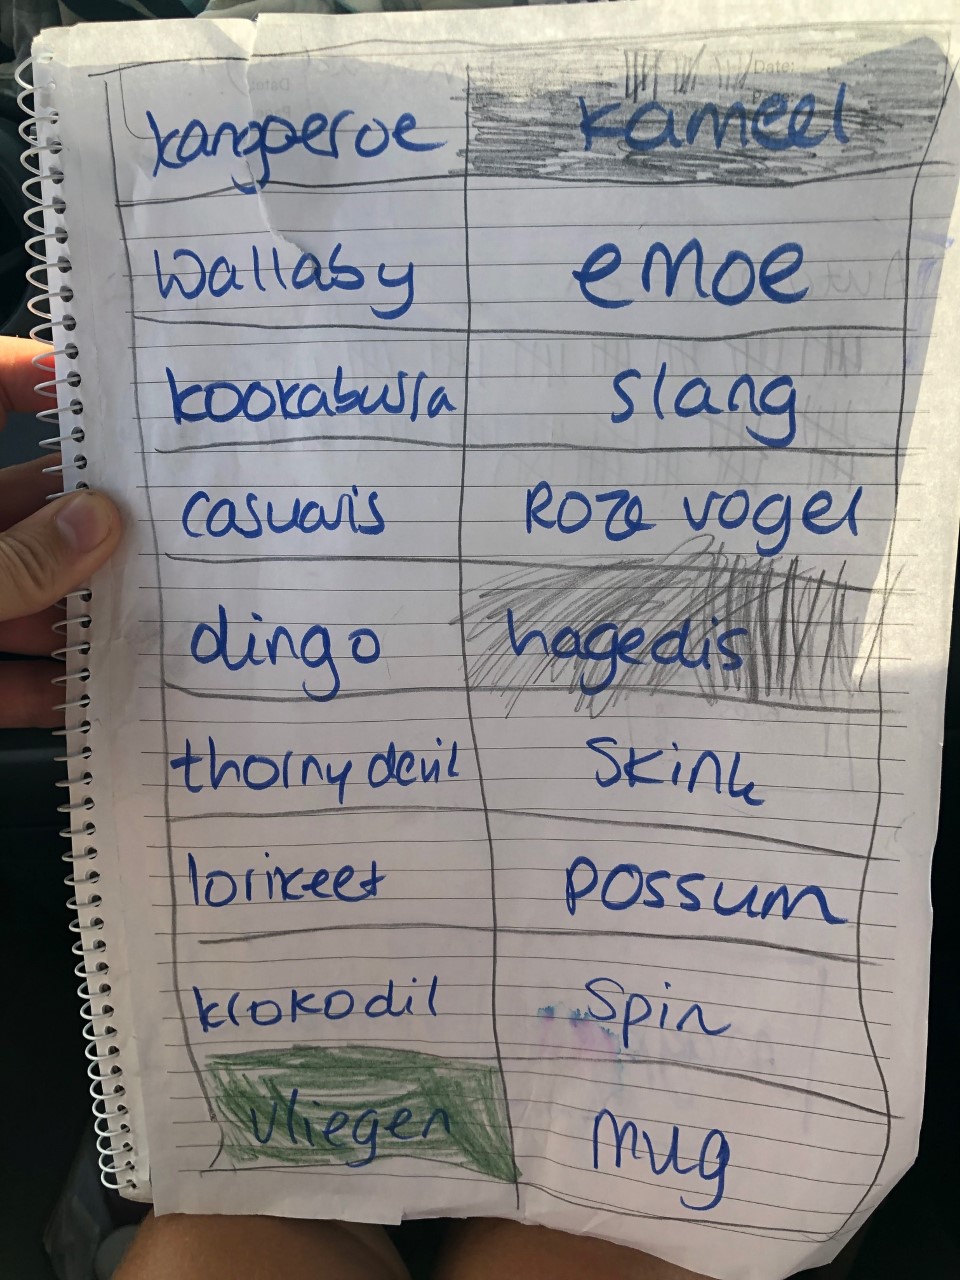 Date:
kangoeroe kameel
Wallaby emoe
kookaburra slang
casuaris Roze vogel
dingo hagedis
thorny devil Skink
lorikeet possum
krokodil Spin
vliegen mug